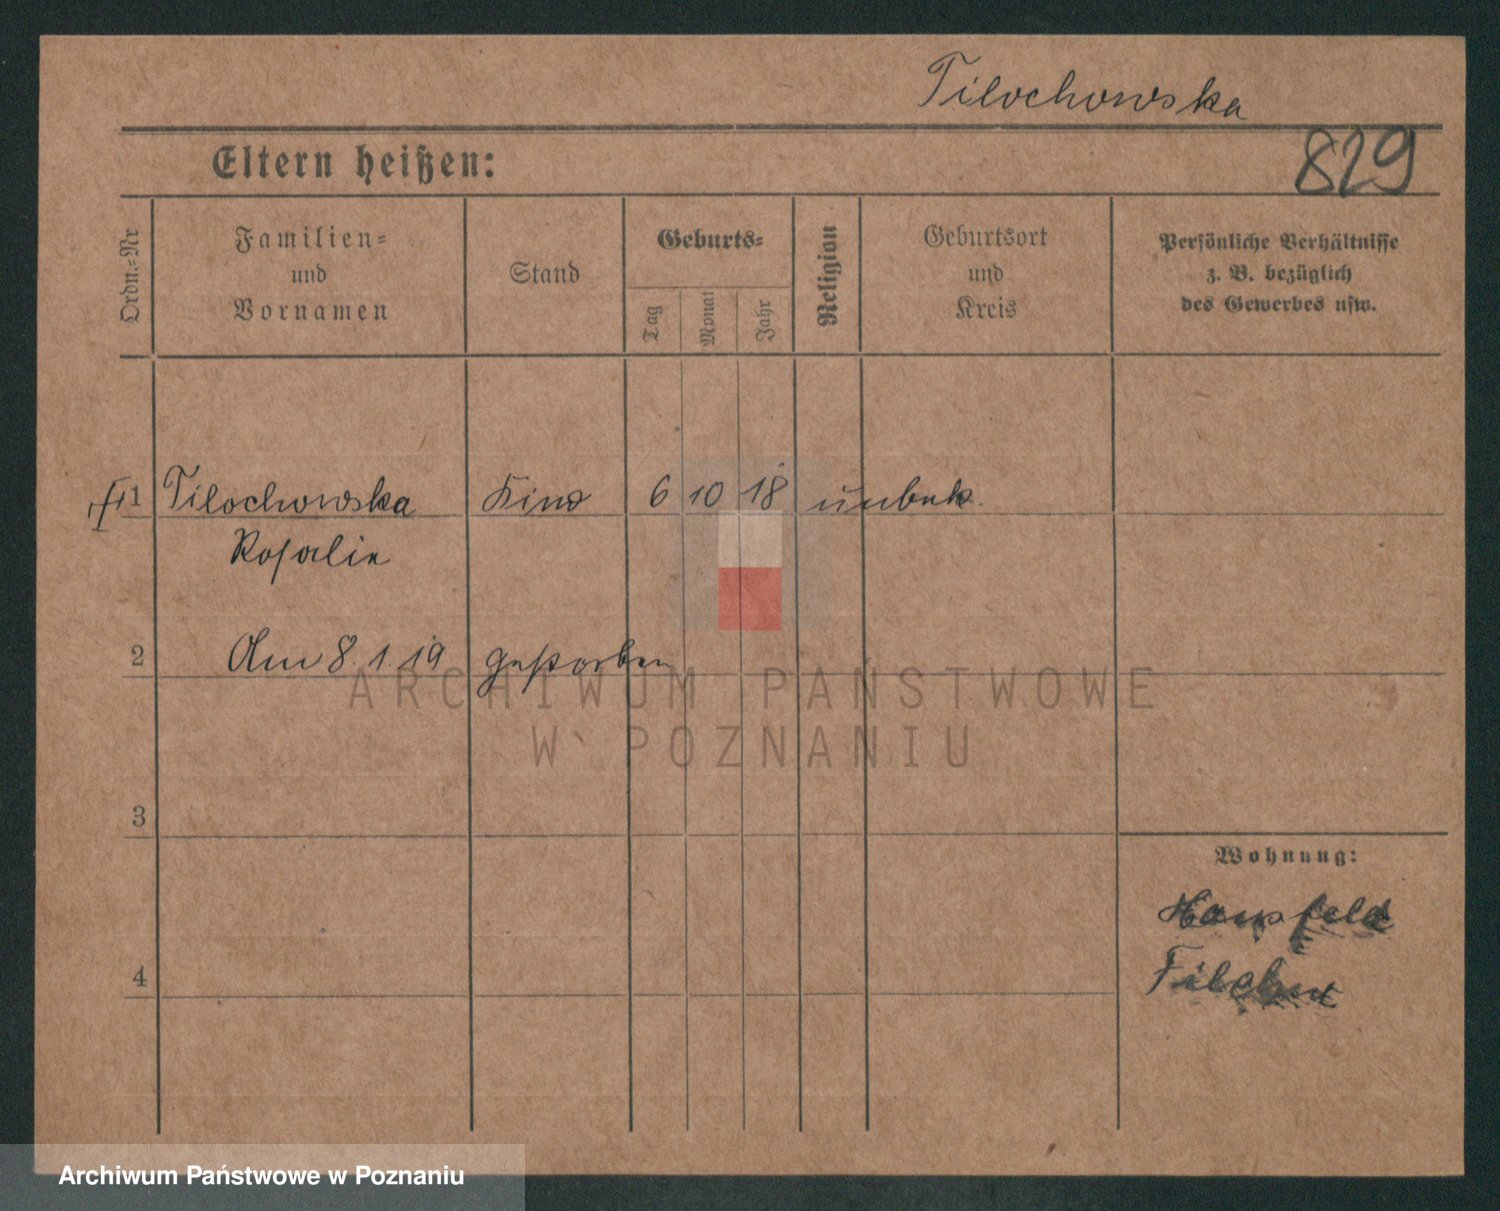 Tilochowska
829
Eltern heißen:
Ordn.-Nr
Familien-
und
Vornamen
Stand
Geburts-
Tag
Monat
Jahr
Religion
Geburtsort
und
Kreis
Persönliche Verhältnisse
z. B. bezüglich
des Gewerbes usw.
1 Tilochowska Kind 6 10 18 unbek.
Rosalie
2 Am 8.1.19 gestorben
ARCHIWUM PAŃSTWOWE
W POZNANIU
3
Wohnung:
4
Archiwum Państwowe w Poznaniu